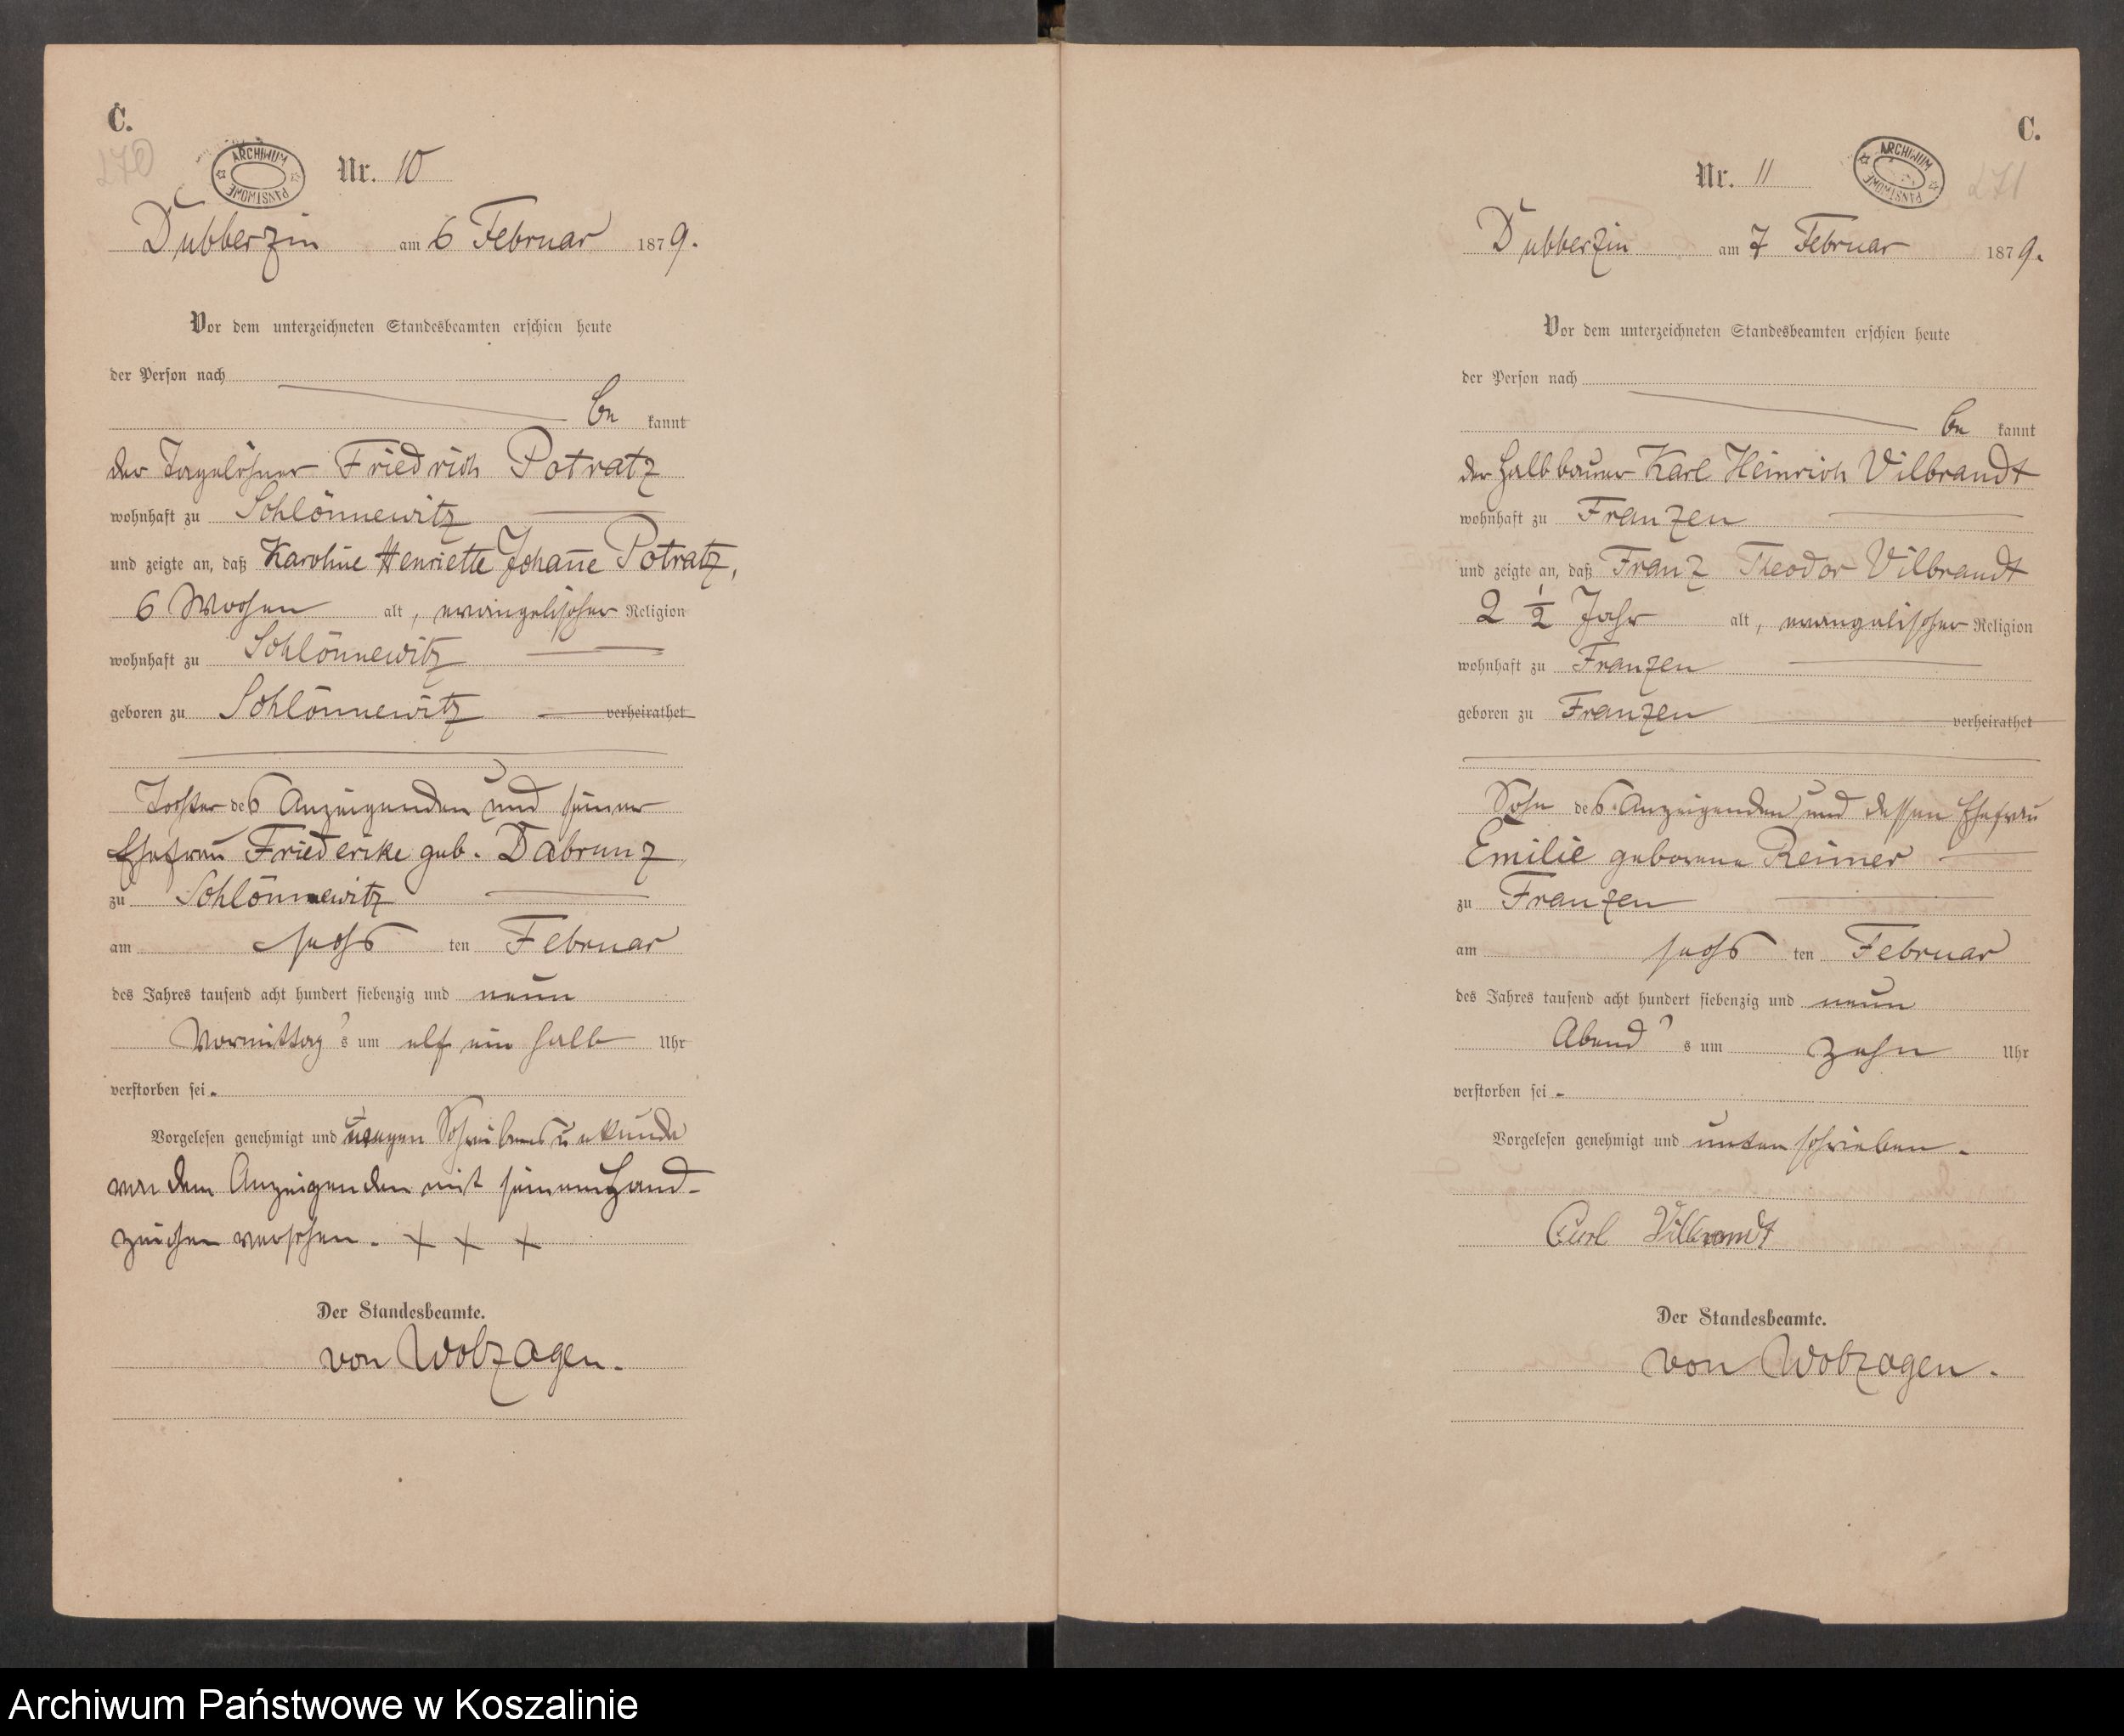 C.
270
ARCHIWUM PAŃSTWOWE
Nr. 10
Dubberzin am 6 Februar 1879.
Vor dem unterzeichneten Standesbeamten erschien heute
der Person nach
be kannt
der Tagelöhner Friedrich Potratz
wohnhaft zu Schlönnewitz
und zeigte an, daß Karoline Henriette Johane Potratz,
6 Wochen alt, evangelischer Religion
wohnhaft zu Schlönnewitz
geboren zu Schlönnewitz verheirathet
Tochter des Anzeigenden und seiner
Ehefrau Friedericke geb. Dabrunz
zu Schlönnewitz
am sechs ten Februar
des Jahres tausend acht hundert siebenzig und neun
Vormittag s um elf ein halb Uhr
verstorben sei.
Vorgelesen genehmigt und wegen Schreibensunkunde
von dem Anzeigenden mit seinem Hand-
zeichen versehen. + + +
Der Standesbeamte.
von Wolzogen.
C.
271
ARCHIWUM PAŃSTWOWE
Nr. 11
Dubberzin am 7 Februar 1879.
Vor dem unterzeichneten Standesbeamten erschien heute
der Person nach
be kannt
der Halbbauer Karl Heinrich Vilbrandt
wohnhaft zu Franzen
und zeigte an, daß Franz Theodor Vilbrandt
2 1/2 Jahr alt, evangelischer Religion
wohnhaft zu Franzen
geboren zu Franzen verheirathet
Sohn des Anzeigenden und dessen Ehefrau
Emilie geborene Reimer
zu Franzen
am sechs ten Februar
des Jahres tausend acht hundert siebenzig und neun
Abend s um zehn Uhr
verstorben sei.
Vorgelesen genehmigt und unterschrieben.
Carl Vilbrandt
Der Standesbeamte.
von Wolzogen.
Archiwum Państwowe w Koszalinie